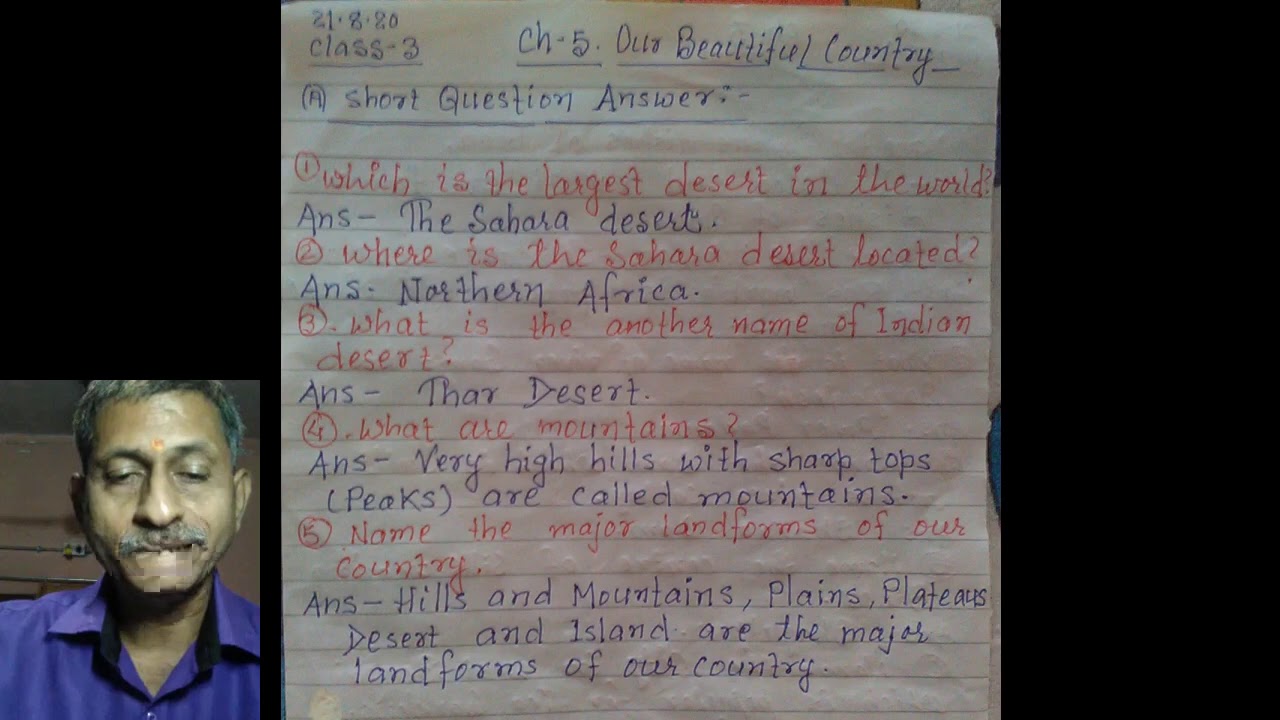 21.8.20
Class-3
Ch-5. Our Beautiful Country
(A) Short Question Answer:-
① Which is the largest desert in the world?
Ans- The Sahara desert.
② Where is the Sahara desert located?
Ans. Northern Africa.
③. What is the another name of Indian
desert?
Ans- Thar Desert.
④. What are mountains?
Ans- Very high hills with sharp tops
(Peaks) are called mountains.
⑤ Name the major landforms of our
country.
Ans- Hills and Mountains, Plains, Plateaus
Desert and Island are the major
landforms of our country.